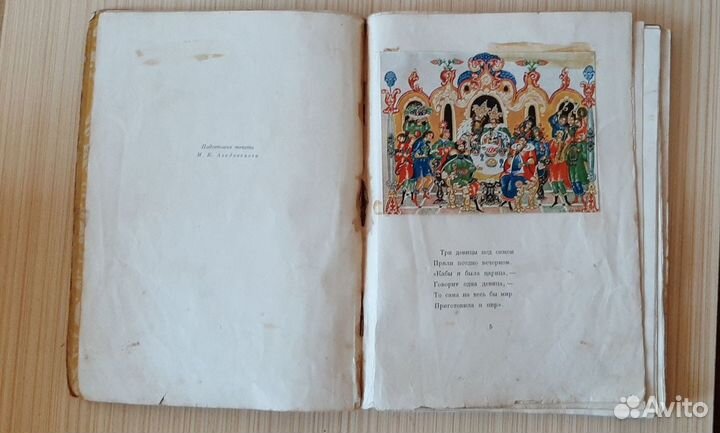 Подготовка текста
М. К. Азадовского
Три девицы под окном
Пряли поздно вечерком.
«Кабы я была царица,—
Говорит одна девица,—
То сама на весь бы мир
Приготовила я пир».
5
Avito